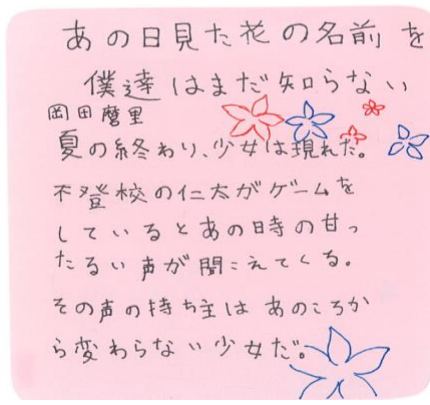 あの日見た花の名前を
僕達はまだ知らない
岡田麿里
夏の終わり、少女は現れた。
不登校の仁太がゲームを
しているとあの時の甘っ
たるい声が聞こえてくる。
その声の持ち主はあのころか
ら変わらない少女だ。